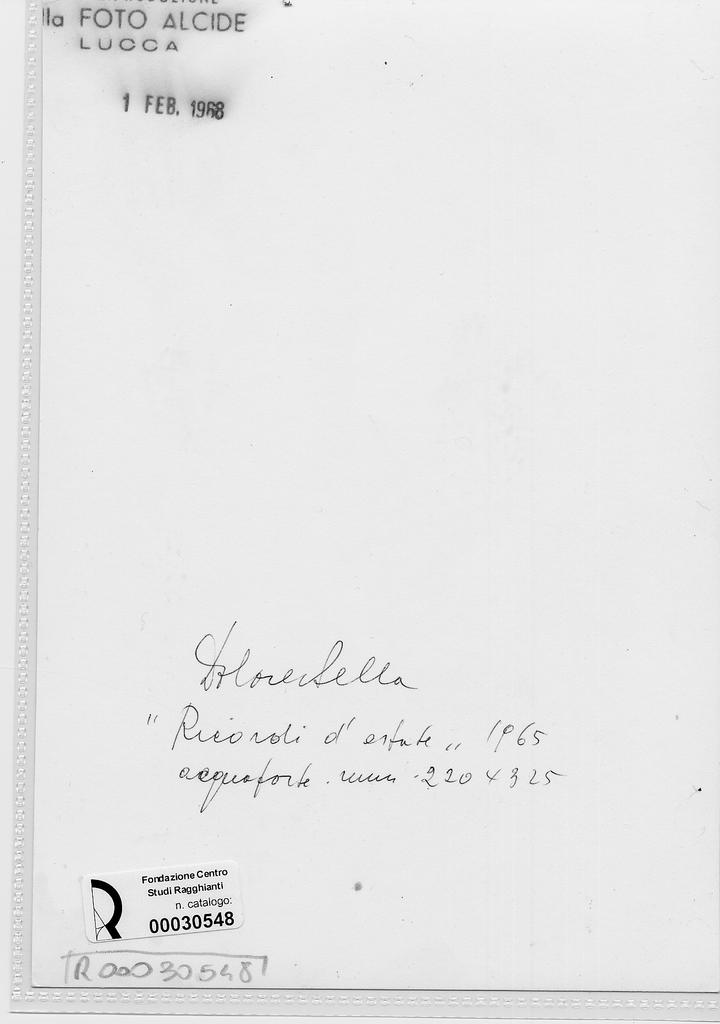 lla FOTO ALCIDE
LUCCA
1 FEB. 1968
Dolores Sella
"Ricordi d'estate„ 1965
acquaforte. mm. 220 x 325
Fondazione Centro
Studi Ragghianti
n. catalogo:
00030548
R00030548